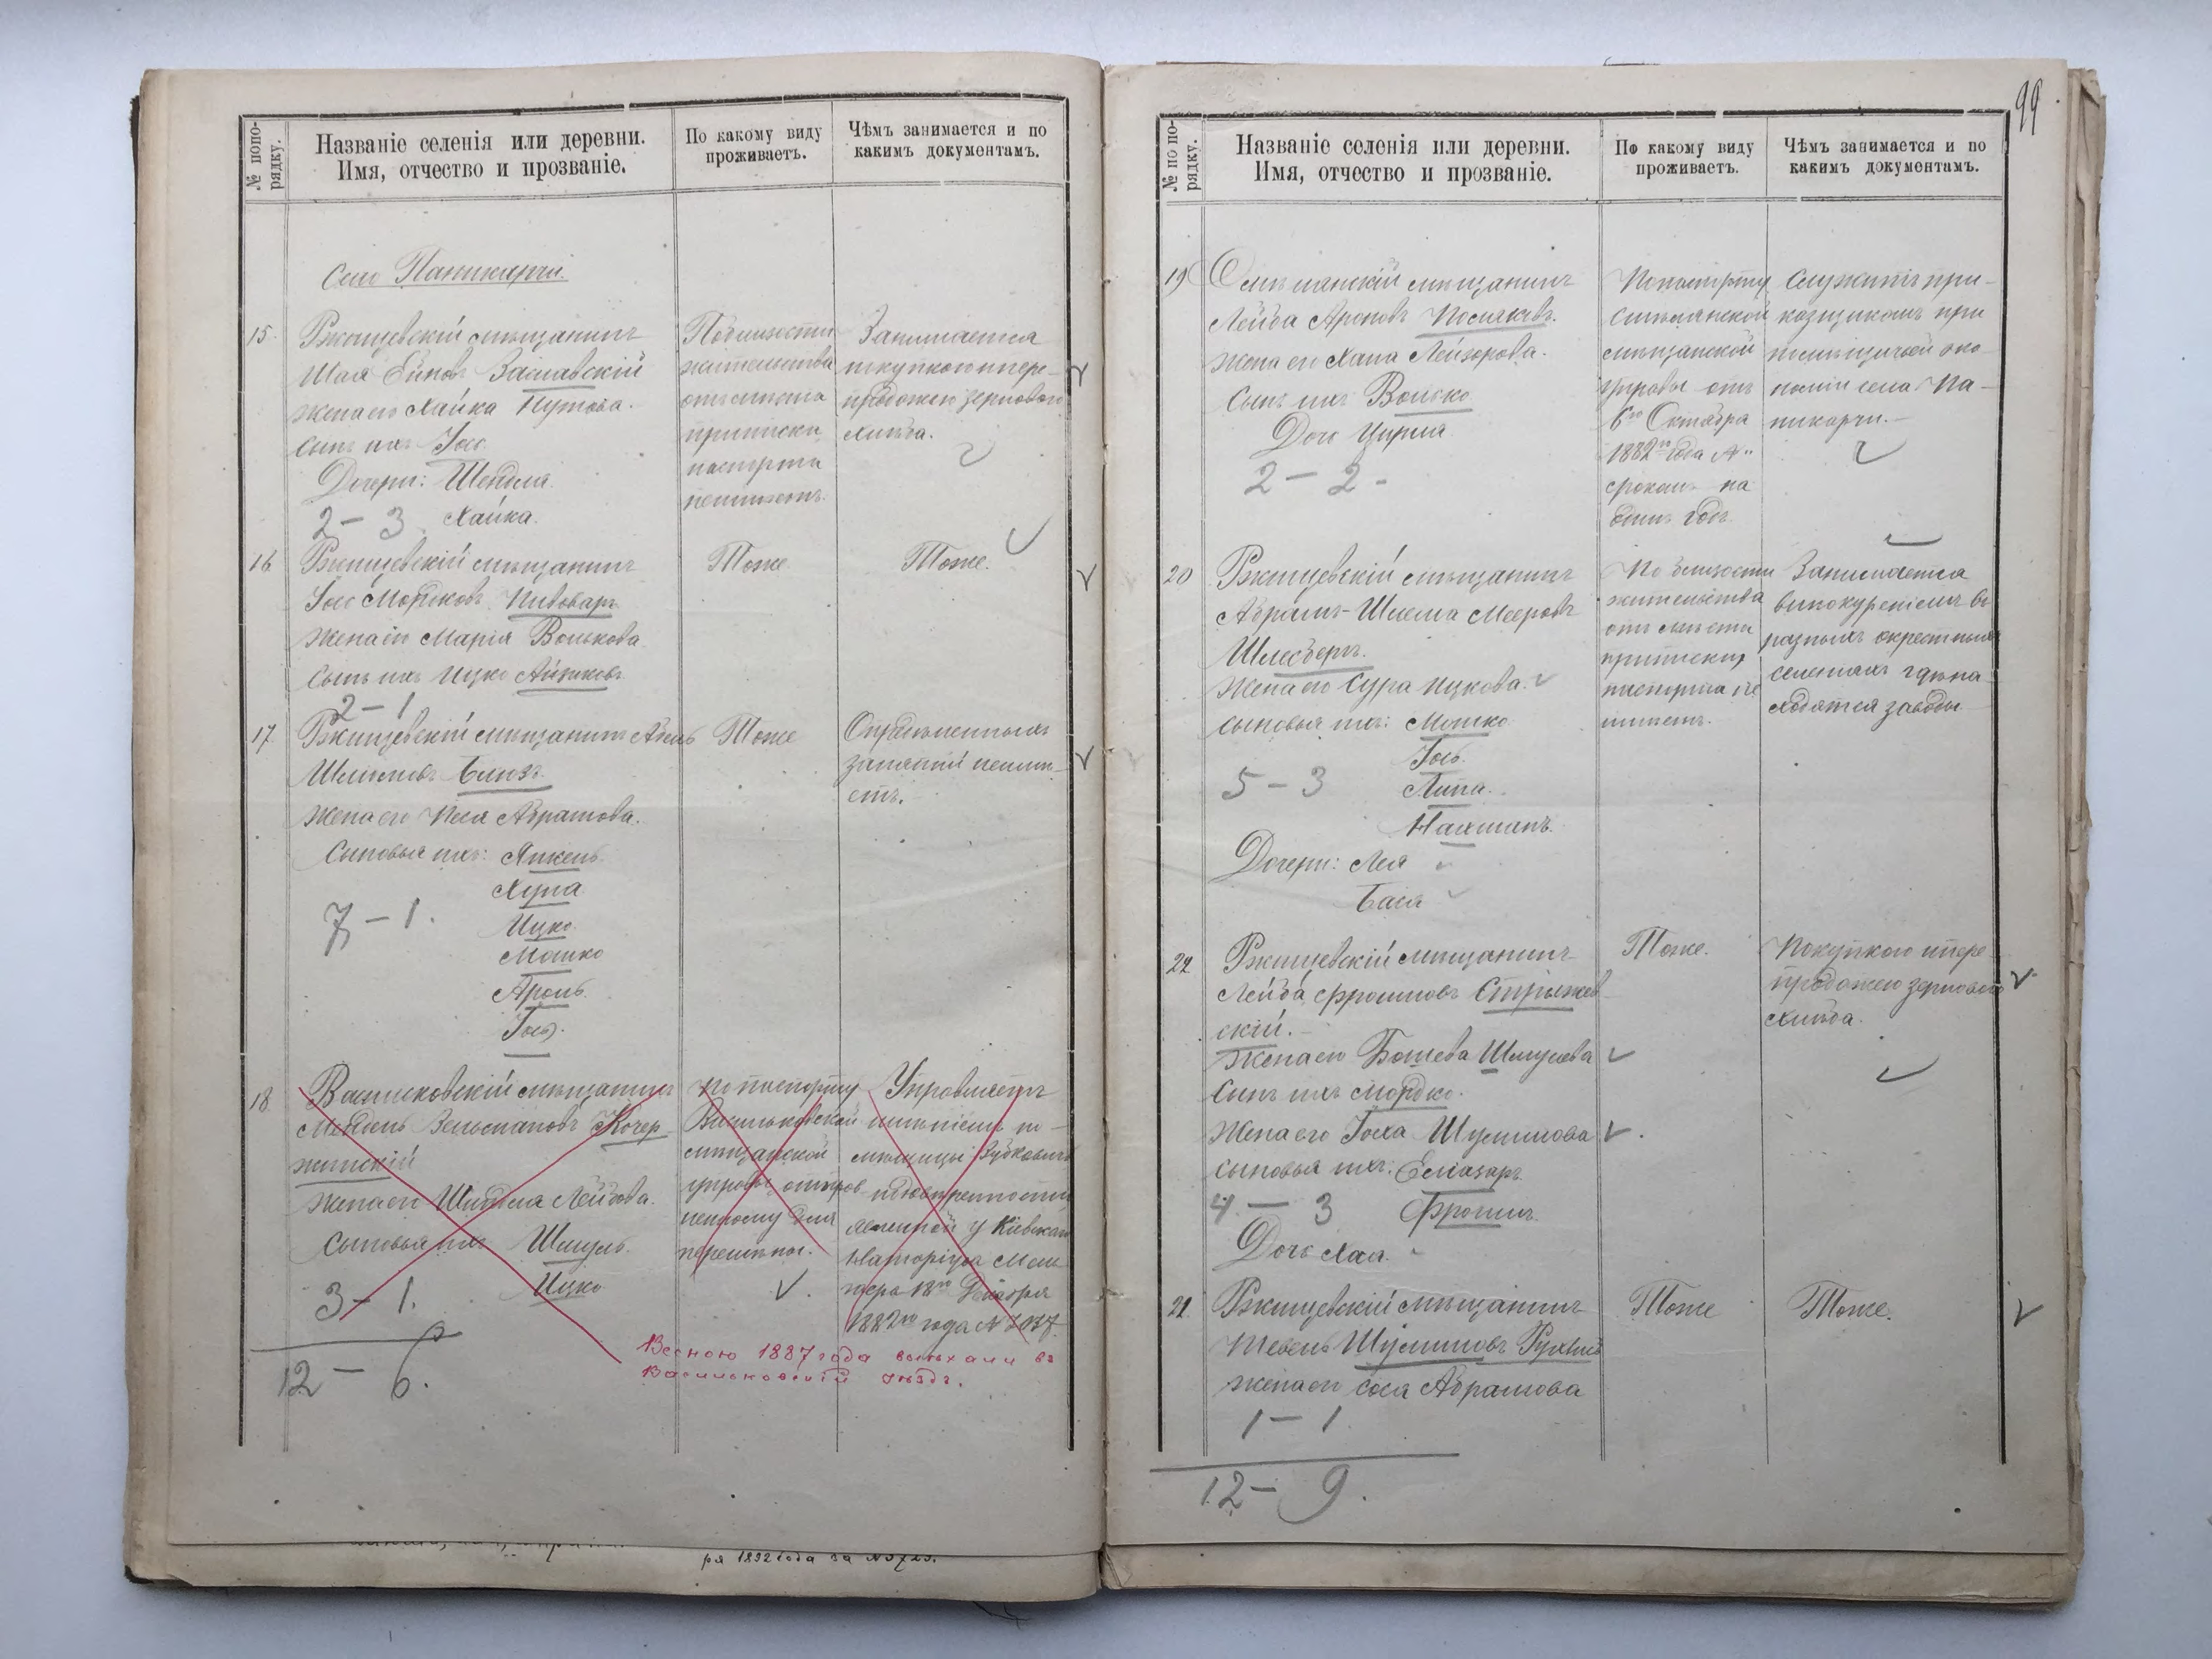 № попо-
рядку.
Названіе селенія или деревни.
Имя, отчество и прозваніе.
По какому виду
проживаетъ.
Чѣмъ занимается и по
какимъ документамъ.
Село Паникарчи.
15.
Ржищевскій мѣщанинъ
Шая Ейновъ Заславскій
жена его Хайка Нутова.
сынъ ихъ Іос
Дочери: Шейдля.
Хайка.
2 – 3
По близости
жительства
отъ мѣста
приписки,
паспорта
неимѣетъ.
Занимается
покупкою и пере-
продажею зерноваго
хлѣба.
16
Ржищевскій мѣщанинъ
Іось Мордковъ Пивоваръ
жена его Марія Волькова
Сынъ ихъ Ицко
2 – 1
Тоже
Тоже.
17.
Ржищевскій мѣщанинъ
Шлемовъ
жена его Песя Абрамова.
Сыновья ихъ: Янкель
Ицко
Мошко
Аронъ.
Іось.
7 – 1.
Тоже
Опредѣленныхъ
занятій неимѣ-
етъ.
18
Васильковскій мѣщанинъ
Мендель Зельмановъ Кочер-
жинскій
жена его Шиндля Лейбова.
Сыновья ихъ Шмуль.
Ицко
3 – 1.
12 – 6.
по паспорту
Васильковской
мѣщанской
управы
Управляетъ
имѣніемъ по-
мѣщицы
у Кіевскаго
Нотаріуса
1882го года №
Весною 1887 года выѣхали въ
Васильковскій уѣздъ.
ря 1892 года за №
99
№ по по-
рядку.
Названіе селенія или деревни.
Имя, отчество и прозваніе.
По какому виду
проживаетъ.
Чѣмъ занимается и по
какимъ документамъ.
19
мѣщанинъ
Лейба Ароновъ
жена его Хана Лейзорова.
Сынъ ихъ Волько
Дочь Цирля
2 – 2 –
По паспорту
мѣщанской
управы отъ
6го Октября
1882го года №
срокомъ на
одинъ годъ.
Служитъ при-
казщикомъ при
помѣщичьей эко-
номіи села Па-
никарчи.–
20
Ржищевскій мѣщанинъ
Абрамъ-Шлема Мееровъ
жена его Сура Ицкова.
сыновья ихъ: Мошко
Іось.
Липа.
Нахманъ.
5 – 3
Дочери: Лея
Бася
По близости
жительства
отъ мѣста
приписки,
паспорта не
имѣетъ.
Занимается
винокуреніемъ въ
разныхъ окрестныхъ
селеніяхъ гдѣ на-
ходятся заводы
22
Ржищевскій мѣщанинъ
Лейба Фроимовъ Стрыжев-
скій.
жена его Башева Шмулева
Сынъ ихъ Мордко.
Жена его Шулимова
сыновья ихъ: Елиазаръ.
Фроимъ.
4 – 3
Дочь Хая.
Тоже.
Покупкою и пере-
продажею зерноваго
хлѣба.
21.
Ржищевскій мѣщанинъ
Шулимовъ
жена его Сося Абрамова
1 – 1
12 – 9.
Тоже
Тоже.